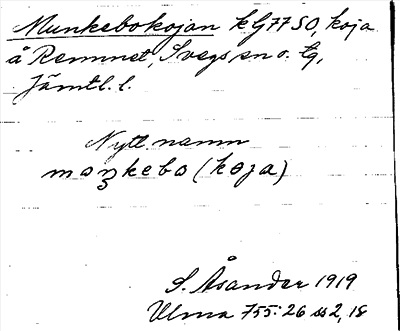 Munkebokojan kG77SO, koja
å Remmet, Svegs sn o. tg,
Jämtl. l.
Nytt namn
moŋkebo (koja)
S. Åsander 1919
Ulma 755:26 ss 2, 18